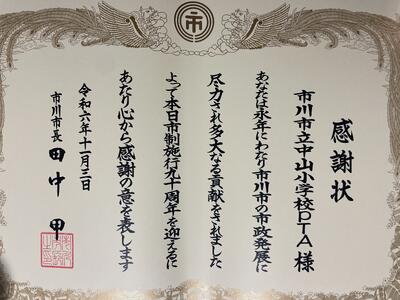 感謝状
市川市立中山小学校PTA 様
あなたは永年にわたり市川市の市政発展に
尽力され多大なる貢献をされました
よって本日市制施行九十周年を迎えるに
あたり心から感謝の意を表します
令和六年十一月三日
市川市長 田中 甲